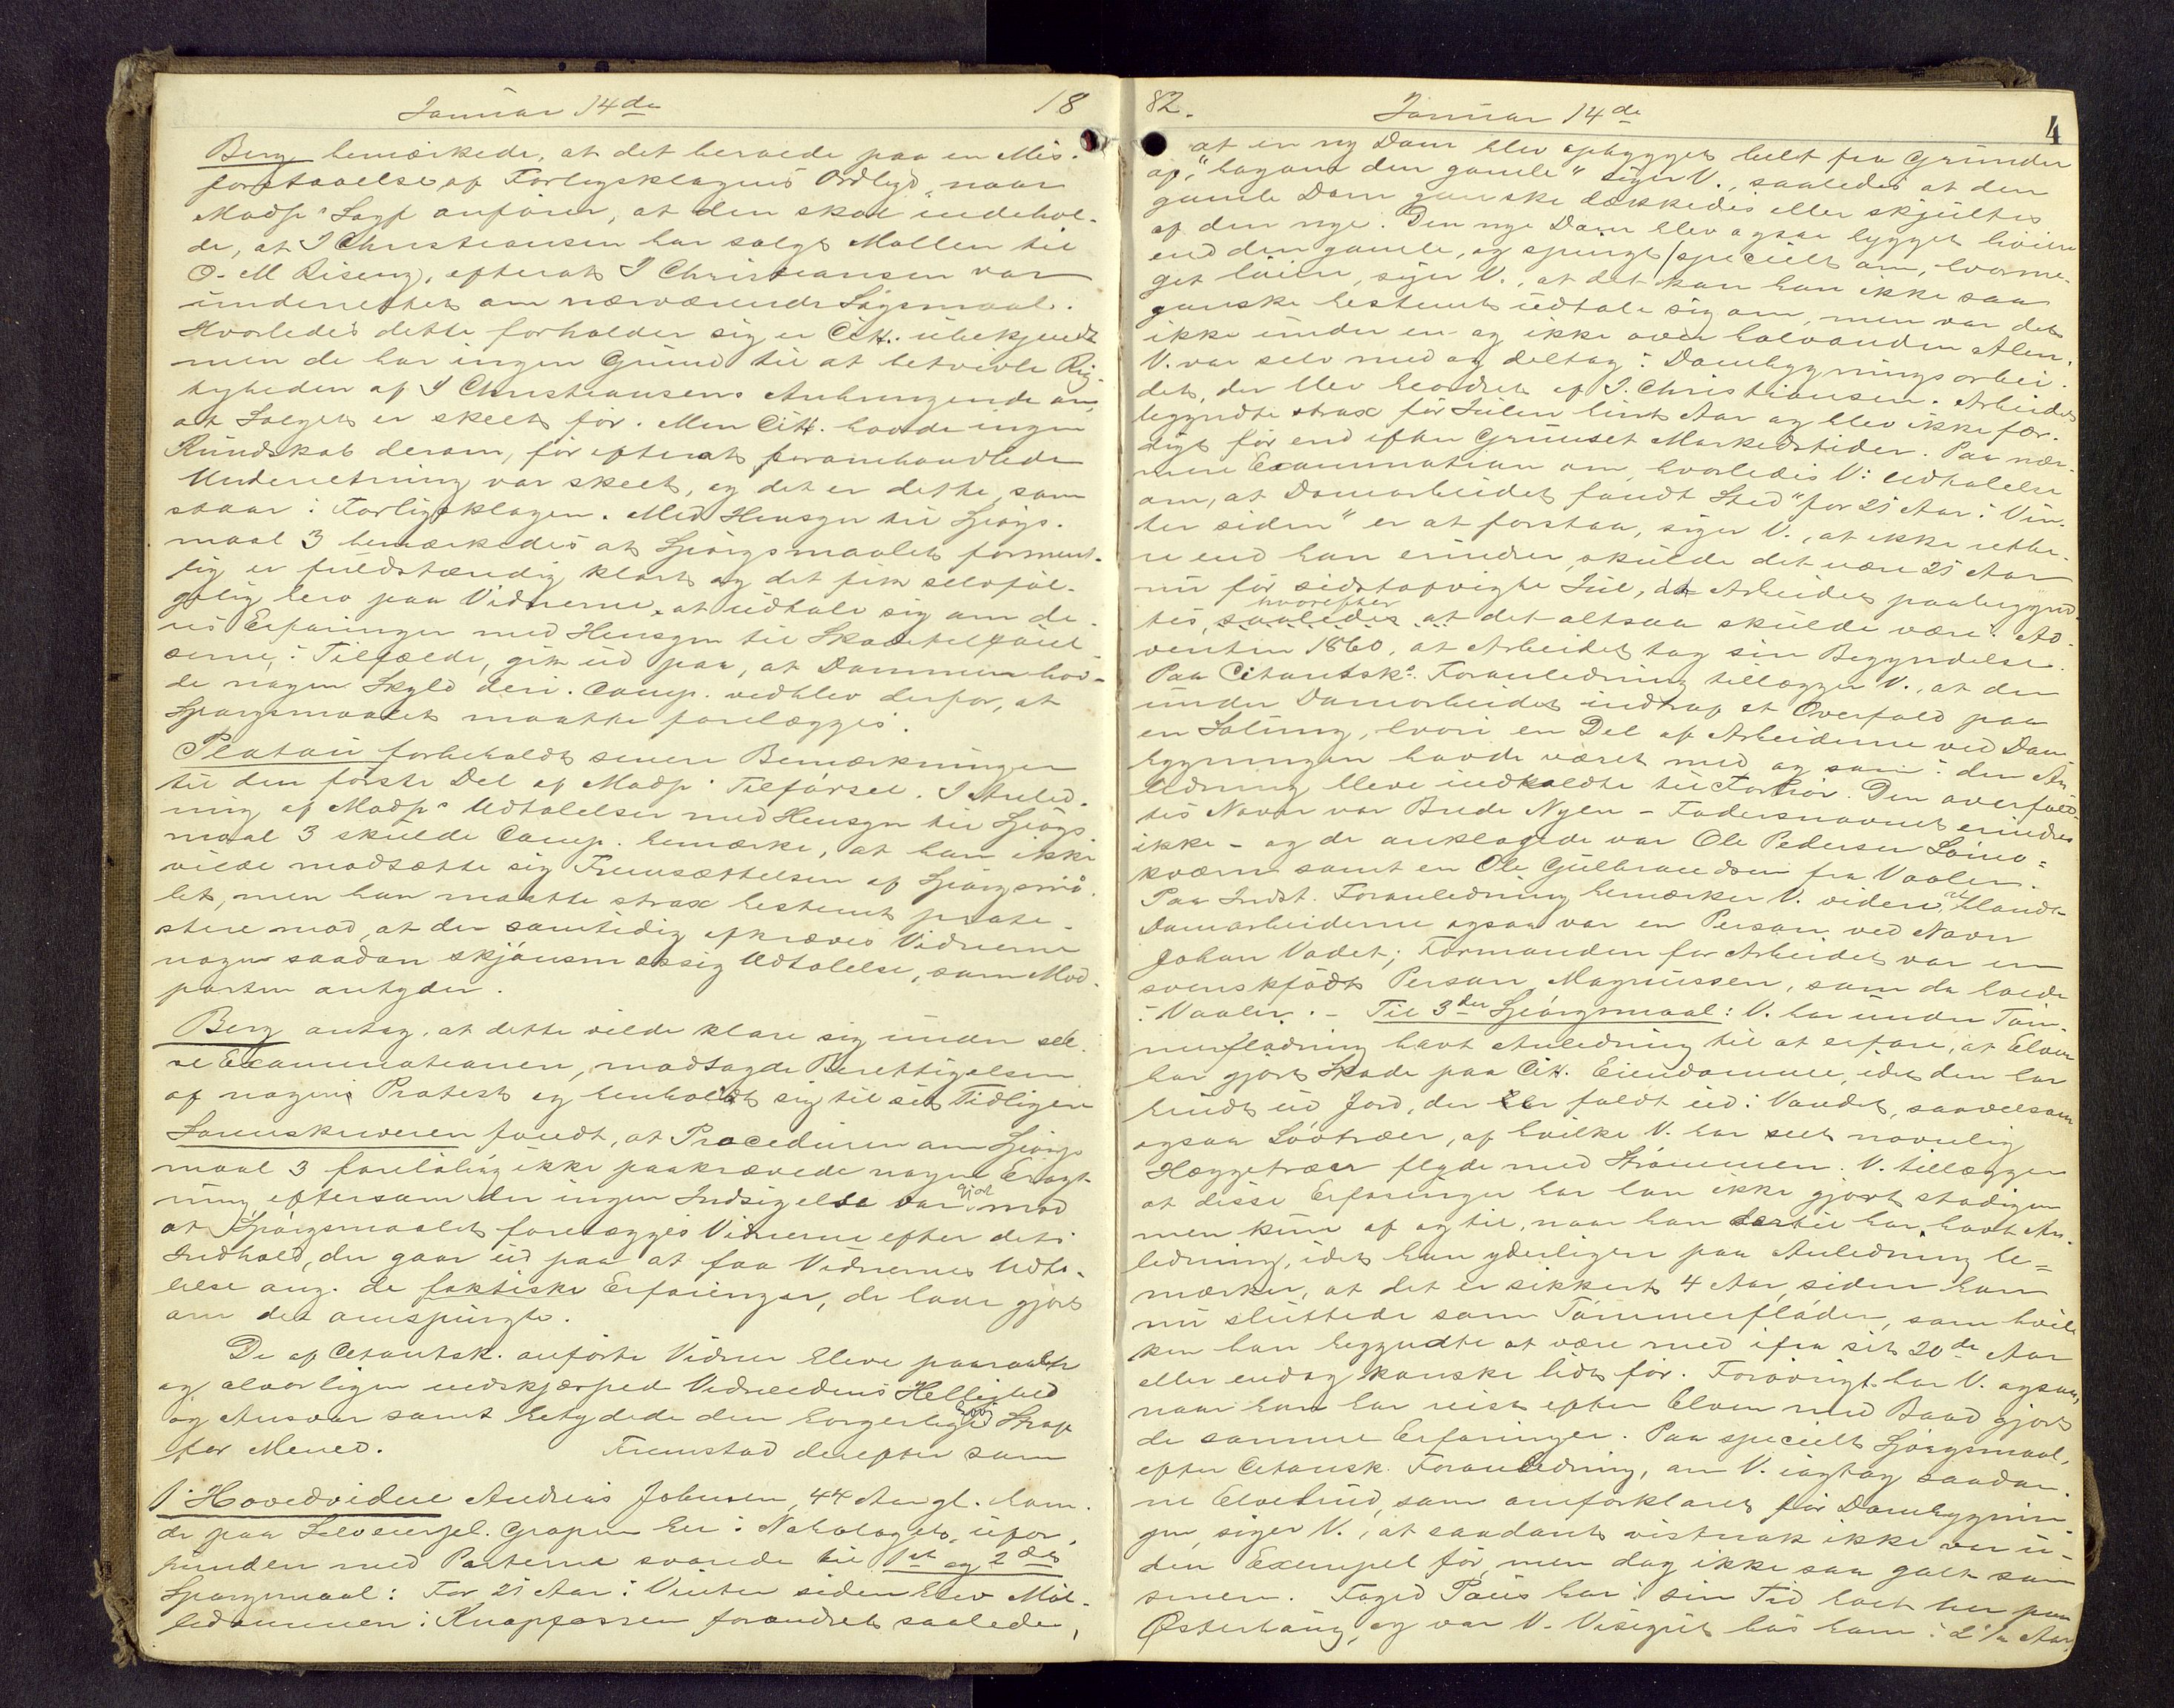 Januar 14de 18
Berg bemærkede, at det beroede paa en Mis-
forstaaelse af Forligsklagens Ordlyd, naar
Modp.s Sagf. anfører, at den skal indehol-
de, at I Christiansen har solgt Møllen til
O. M Riseng, efterat I Christiansen var
underrettet om nærværende Søgsmaal.
Hvorledes dette forholder sig er Citt. ubekjendt
men de har ingen Grund til at betvivle Rig-
tigheden af I Christiansens Anbringende om,
at Salget er skeet før. Men Citt. havde ingen
Kundskab derom, før efterat foromhandlede
Underretning var skeet, og det er dette, som
staar i Forligsklagen. Med Hensyn til Spørgs-
maal 3 bemærkedes at Spørgsmaalet forment-
lig er fuldstændig klart og det fik selvføl-
gelig bero paa Vidnerne, at udtale sig om de-
res Erfaringer med Hensyn til Skadetilføiel-
serne, i Tilfælde, gik ud paa, at Dammen hav-
de nogen Skyld deri. Comp. vedblev derfor, at
Spørgsmaalet maatte forelægges.
Platou forbeholdt senere Bemærkninger
til den første Del af Modp.s Tilførsel. I Anled-
ning af Modp.s Udtalelser med Hensyn til Spørgs-
maal 3 skulde Comp. bemærke, at han ikke
vilde modsætte sig Fremsættelsen af Spørgsmå-
let, men han maatte strax bestemt prote-
stere mod, at der samtidig afkræves Vidnerne
nogen saadan skjønsmæssig Udtalelse, som Mod-
parten antyder.
Berg antog, at dette vilde klare sig under sel-
ve Examinationen, modsagde Berettigelsen
af nogen Protest og henholdt sig til sit Tidligere
Sorenskriveren fandt, at Proceduren om Spørgs-
maal 3 foreløbig ikke paakrævede nogen Eragt-
ning eftersom der ingen Indsigelse var gjort mod
at Spørgsmaalet forelægges Vidnerne efter dets
Indhold, der gaar ud paa at faa Vidnernes Udta-
lelse ang. de faktiske Erfaringer, de have gjort
om det omspurgte.
De af Citantsk. anførte Vidner bleve paaraabte
og alvorligen indskjærped Vidneedens Hellighed
og Ansvar samt betydede den borgerlige Straf
for Mened. Fremstod derefter som
1. Hovedvidne Andreas Johnsen, 44 Aar gl. bom.
de paa Selveierpl. Grapen her i Nabolaget, ufor-
bunden med Parterne svarede til 1st og 2det
Spørgsmaal: For 21 Aar i Vinter siden blev Møl-
ledammen i Knapfossen forandret saaledes,
82. Januar 14de 4
at en ny Dam blev opbygget helt fra Grunden
op, "bagom den gamle" siger V., saaledes at den
gamle Dam ganske dækkedes eller skjultes
af den nye. Den nye Dam blev ogsaa bygget høiere
end den gamle, og spurgt specielt om, hvorme-
get høiere, siger V., at det kan han ikke saa
ganske bestemt udtale sig om, men var det
ikke under en og ikke over halvanden Alen.
V. var selv med og deltog i Dambygningsarbei-
det, der blev beordret af I. Christiansen. Arbeidet
begyndte strax før Julen hint Aar og blev ikke fær-
digt før end efter Grundset Markedstider. Paa nær-
mere Examination om, hvorledes V.s Udtalelse
om, at Damarbeidet fandt Sted "for 21 Aar i Vin-
ter siden" er at forstaa, siger V., at ikke rette-
re end han erindrer, skulde det være 21 Aar
nu før sidstafvigte Jul, at Arbeidet paabegynd-
tes, saaledes hvorefter at det altsaa skulde være i Ad-
venten 1860, at Arbeidet tog sin Begyndelse.
Paa Citantsk.s Foranledning tillægger V., at der
under Damarbeidet indtraf et Overfald paa
en Solung, hvori en Del af Arbeiderne ved Dam-
bygningen havde været med og som i den An-
ledning bleve indkaldte til Forhør. Den overfald-
tes Navn var Brede Nyen - Fadersnavnet erindres
ikke - og de anklagede var Ole Pedersen
kværn samt en Ole Gulbrandsen fra Vaaler.
Paa Indst. Foranledning bemærker V. videre, at blandt
Damarbeiderne ogsaa var en Person ved Navn
Johan Vadet; Formanden for Arbeidet var en
svenskfødt Person, Magnussen, som da boede
i Vaaler. - Til 3die Spørgsmaal: V. har under Tøm-
merflødning havt Anledning til at erfare, at Elven
har gjort Skade paa Citt. Eiendomme, idet den har
brudt ud Jord, der er faldt ud i Vandet, saavelsom
ogsaa Løvtræer, af hvilke V. har seet navnlig
Hæggetræer flyde med Strømmen. V. tillægger
at disse Erfaringer har han ikke gjort stadigen
men kun af og til, naar han dertil har havt An-
ledning, idet han yderligere paa Anledning be-
mærker, at det er sikkert 4 Aar, siden han
nu sluttede som Tømmerfløder, som hvil-
ken han begyndte at være med ifra sit 20de Aar
eller endog kanske lidt før. Forøvrigt har V. ogsaa,
naar han har reist efter Elven med Baad gjort
de samme Erfaringer. Paa specielt Spørgsmaal,
efter Citantsk. Foranledning, om V. iagtog saadan-
ne Elvebrud, som omforklaret før Dambygnin-
gen, siger V., at saadant vistnok ikke var u-
den Exempel før, men dog ikke saa galt som
senere. Foged Paus har i sin Tid boet her paa
Østerhaug, og var V. Visegut hos ham i 2½ Aar